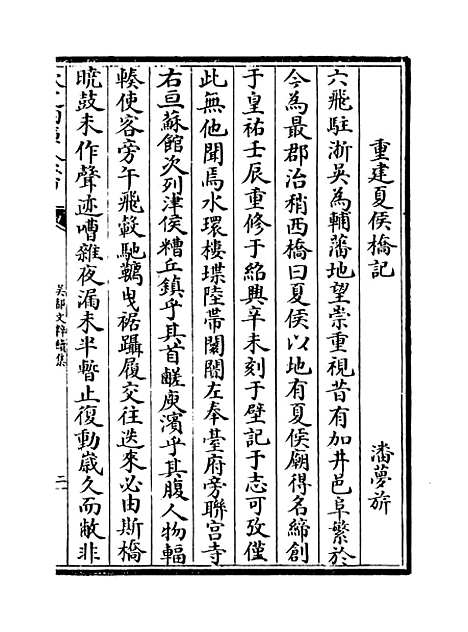 重建夏侯橋記
潘夢旂
六飛駐浙吳為輔藩地望崇重視昔有加井邑阜繁於
今為最郡治稍西橋曰夏侯以地有夏侯廟得名締創
于皇祐壬辰重修于紹興辛未刻于壁記于志可攷僅
此無他聞焉水環樓堞陸帶闤闠左奉臺府旁聯宮寺
右亘蘇館次列津侯糟丘鎮乎其首鹺庾濱乎其腹人物輻
輳使客旁午飛轂馳韉曳裾躡履交往迭來必由斯橋
曉鼓未作聲迹嘈雜夜漏未半暫止復動歲久而敝非
吳都文粹續集
二